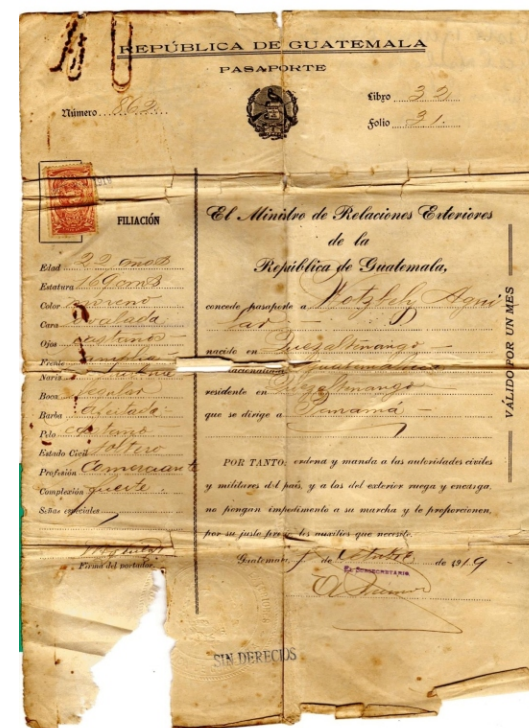 REPÚBLICA DE GUATEMALA
PASAPORTE
Número 862
Libro 32
Folio 31.
FILIACIÓN
Edad 22 años
Estatura 169 cms
Color moreno
Cara ovalada
Ojos castaños
Frente amplia
Nariz
Boca regular
Barba afeitada
Pelo castaño
Estado Civil soltero
Profesión Comerciante
Complexión fuerte
Señas especiales
Firma del portador
El Ministro de Relaciones Exteriores
de la
República de Guatemala,
concede pasaporte a Agui
lar
nacido en Quezaltenango
nacionalidad guatemalteca
residente en Quezaltenango
que se dirige a Panamá
POR TANTO; ordena y manda a las autoridades civiles
y militares del país, y a las del exterior ruega y encarga,
no pongan impedimento a su marcha y le proporcionen,
por su justo precio los auxilios que necesite.
Guatemala, de octubre de 1919
EL SUBSECRETARIO
VÁLIDO POR UN MES
SIN DERECHOS